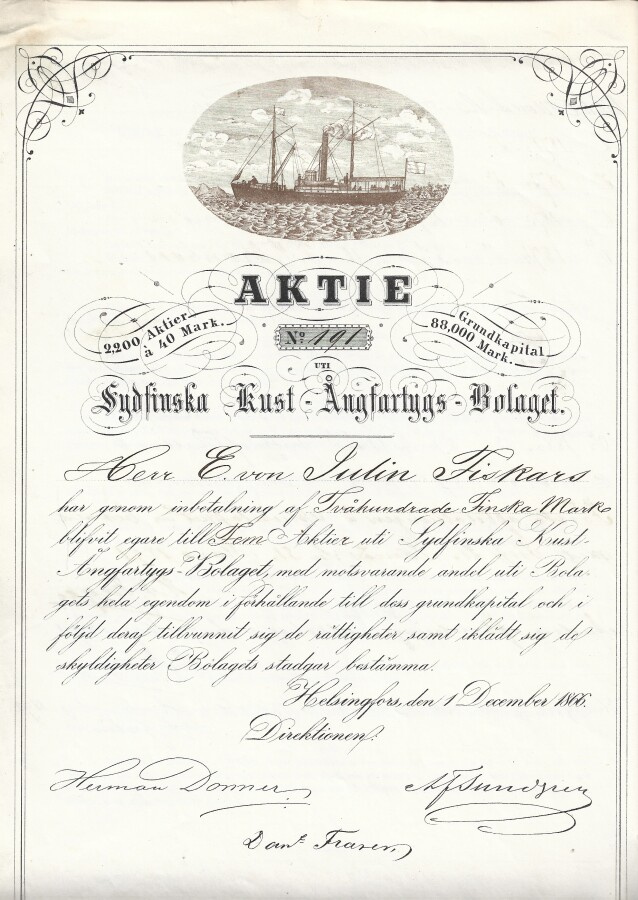 AKTIE
2,200 Aktier
à 40 Mark.
No. 191
Grundkapital
88,000 Mark.
UTI
Sydfinska Kust-Ångfartygs-Bolaget.
Herr E. von Julin Fiskars
har genom inbetalning af Tvåhundrade Finska Mark
blifvit egare till Fem Aktier uti Sydfinska Kust-
Ångfartygs-Bolaget, med motsvarande andel uti Bola-
gets hela egendom i förhållande till dess grundkapital och i
följd deraf tillvunnit sig de rättigheter samt iklädt sig de
skyldigheter Bolagets stadgar bestämma.
Helsingfors, den 1 December 1866.
Direktionen:
Herman Donner
A F Sundgren
Dan. Fraser